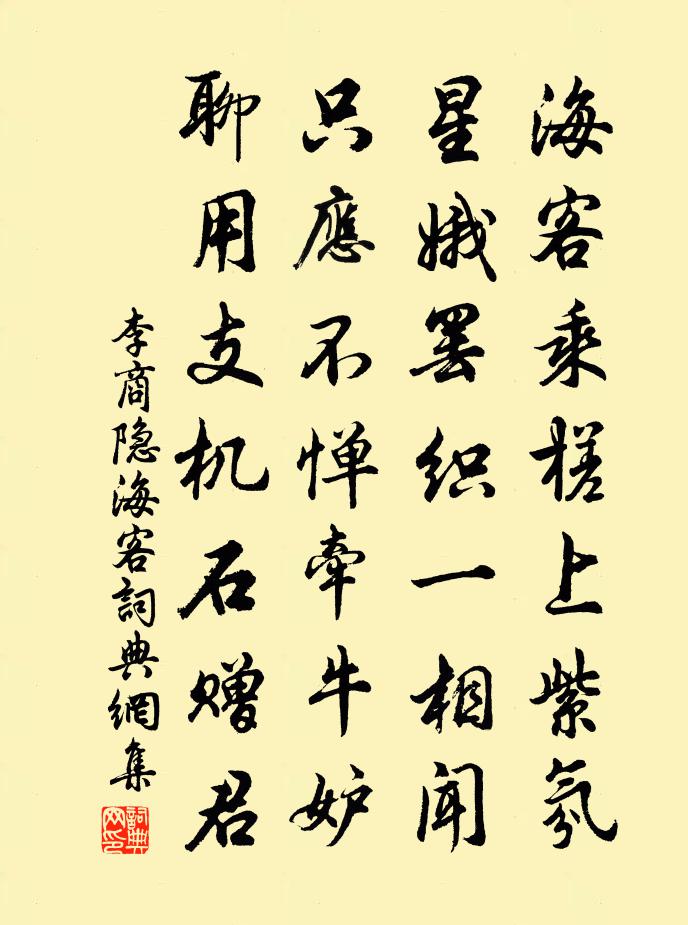 海客乘槎上紫氛
星娥罢织一相闻
只應不惮牽牛妒
聊用支机石赠君
李商隐海客詞典網集
詞典网印